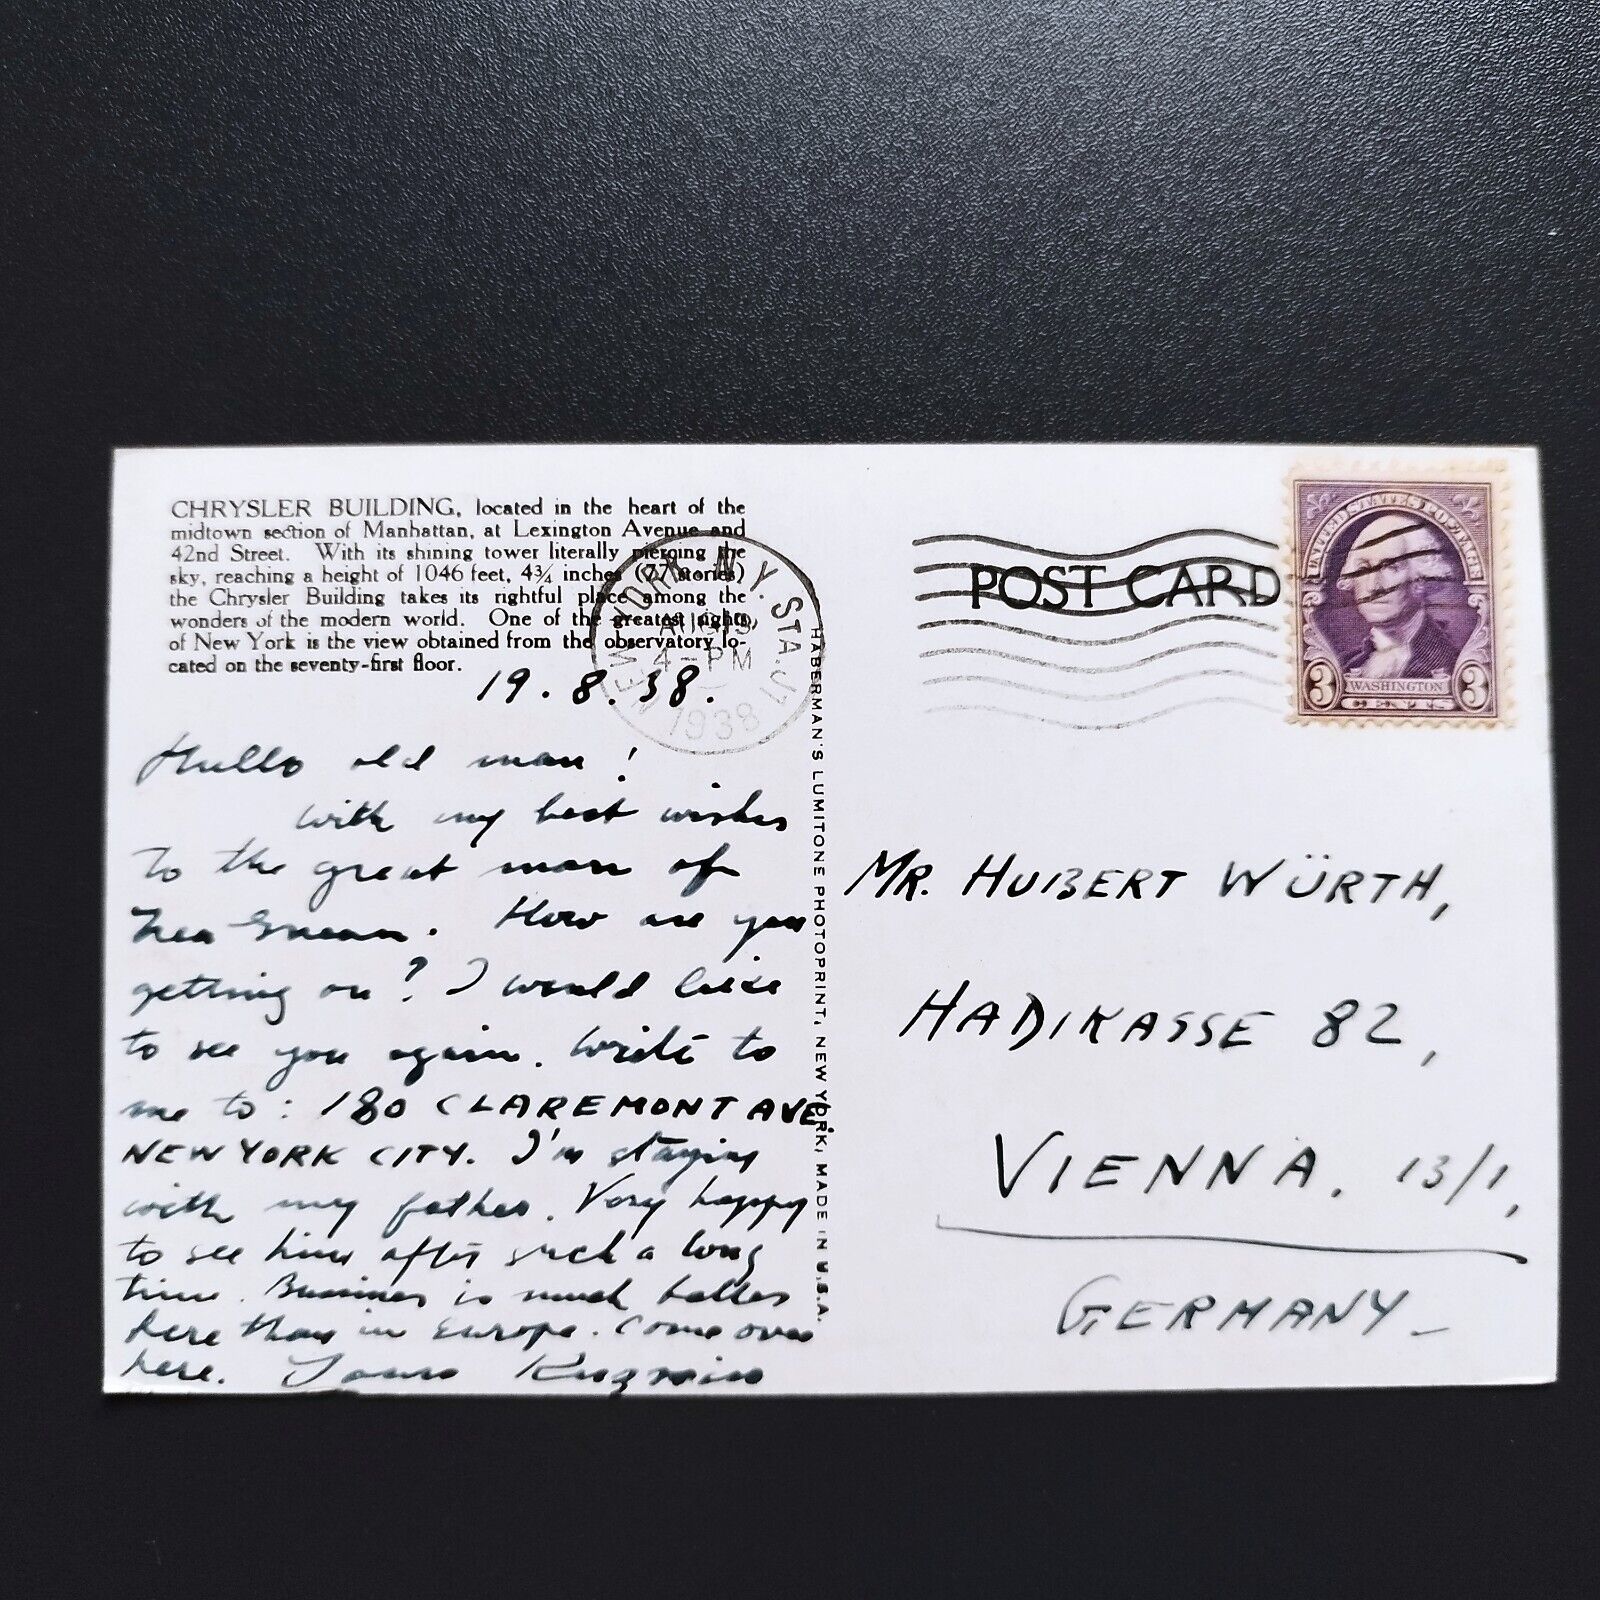 CHRYSLER BUILDING, located in the heart of the
midtown section of Manhattan, at Lexington Avenue and
42nd Street. With its shining tower literally piercing the
sky, reaching a height of 1046 feet, 4¾ inches (77 stories)
the Chrysler Building takes its rightful place among the
wonders of the modern world. One of the greatest sights,
of New York is the view obtained from the observatory lo-
cated on the seventy-first floor.
NEW YORK, N.Y. STA. J
4-PM
1938
19.8.38.
Hullo old man!
with my best wishes
to the great man of
How are you
getting on? I would like
to see you again. Write to
me to: 180 CLAREMONT AVE.
NEW YORK CITY. I'm staying
with my father. Very happy
to see him after such a long
time. Business is much better
here than in Europe. Come over
here. Yours
HABERMAN'S LUMITONE PHOTOPRINT, NEW YORK, MADE IN U.S.A.
POST CARD
UNITED STATES POSTAGE
3 WASHINGTON 3
CENTS
MR. HUBERT WÜRTH,
HADIKASSE 82,
VIENNA. 13/1,
GERMANY_